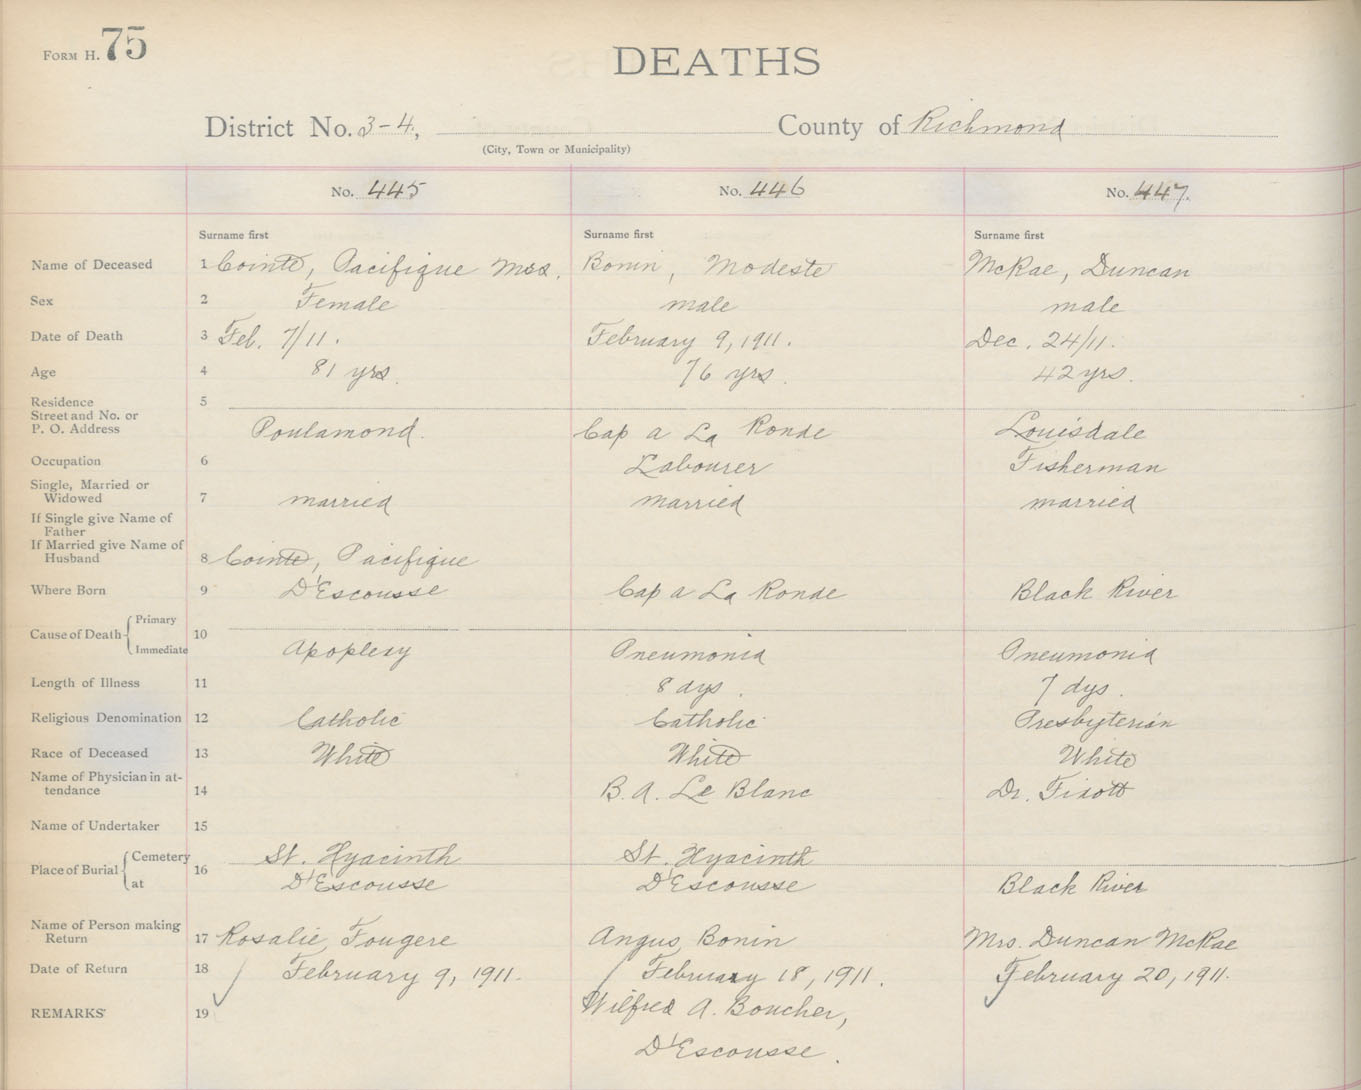 FORM H. 75
DEATHS
District No. 3-4, County of Richmond
(City, Town or Municipality)
No. 445 No. 446 No. 447.
Surname first Surname first Surname first
Name of Deceased 1 Cointe, Pacifique Mrs. Bonin, Modeste McRae, Duncan
Sex 2 Female male male
Date of Death 3 Feb. 7/11. February 9, 1911. Dec. 24/11.
Age 4 81 yrs. 76 yrs. 42 yrs.
Residence 5
Street and No. or
P. O. Address Poulamond. Cap a La Ronde Louisdale
Occupation 6 Labourer Fisherman
Single, Married or
Widowed 7 married married married
If Single give Name of
Father
If Married give Name of
Husband 8 Cointe, Pacifique
Where Born 9 D'Escousse Cap a La Ronde Black River
Cause of Death Primary 10
Immediate Apoplexy Pneumonia Pneumonia
Length of Illness 11 8 dys. 7 dys.
Religious Denomination 12 Catholic Catholic Presbyterian
Race of Deceased 13 White White White
Name of Physician in at-
tendance 14 B. A. Le Blanc Dr. Fixott
Name of Undertaker 15
Place of Burial Cemetery 16 St. Hyacinth St. Hyacinth
at D'Escousse D'Escousse Black River
Name of Person making
Return 17 Rosalie Fougere Angus Bonin Mrs. Duncan McRae
Date of Return 18 February 9, 1911. February 18, 1911. February 20, 1911.
REMARKS 19 Wilfred A. Boucher,
D'Escousse.